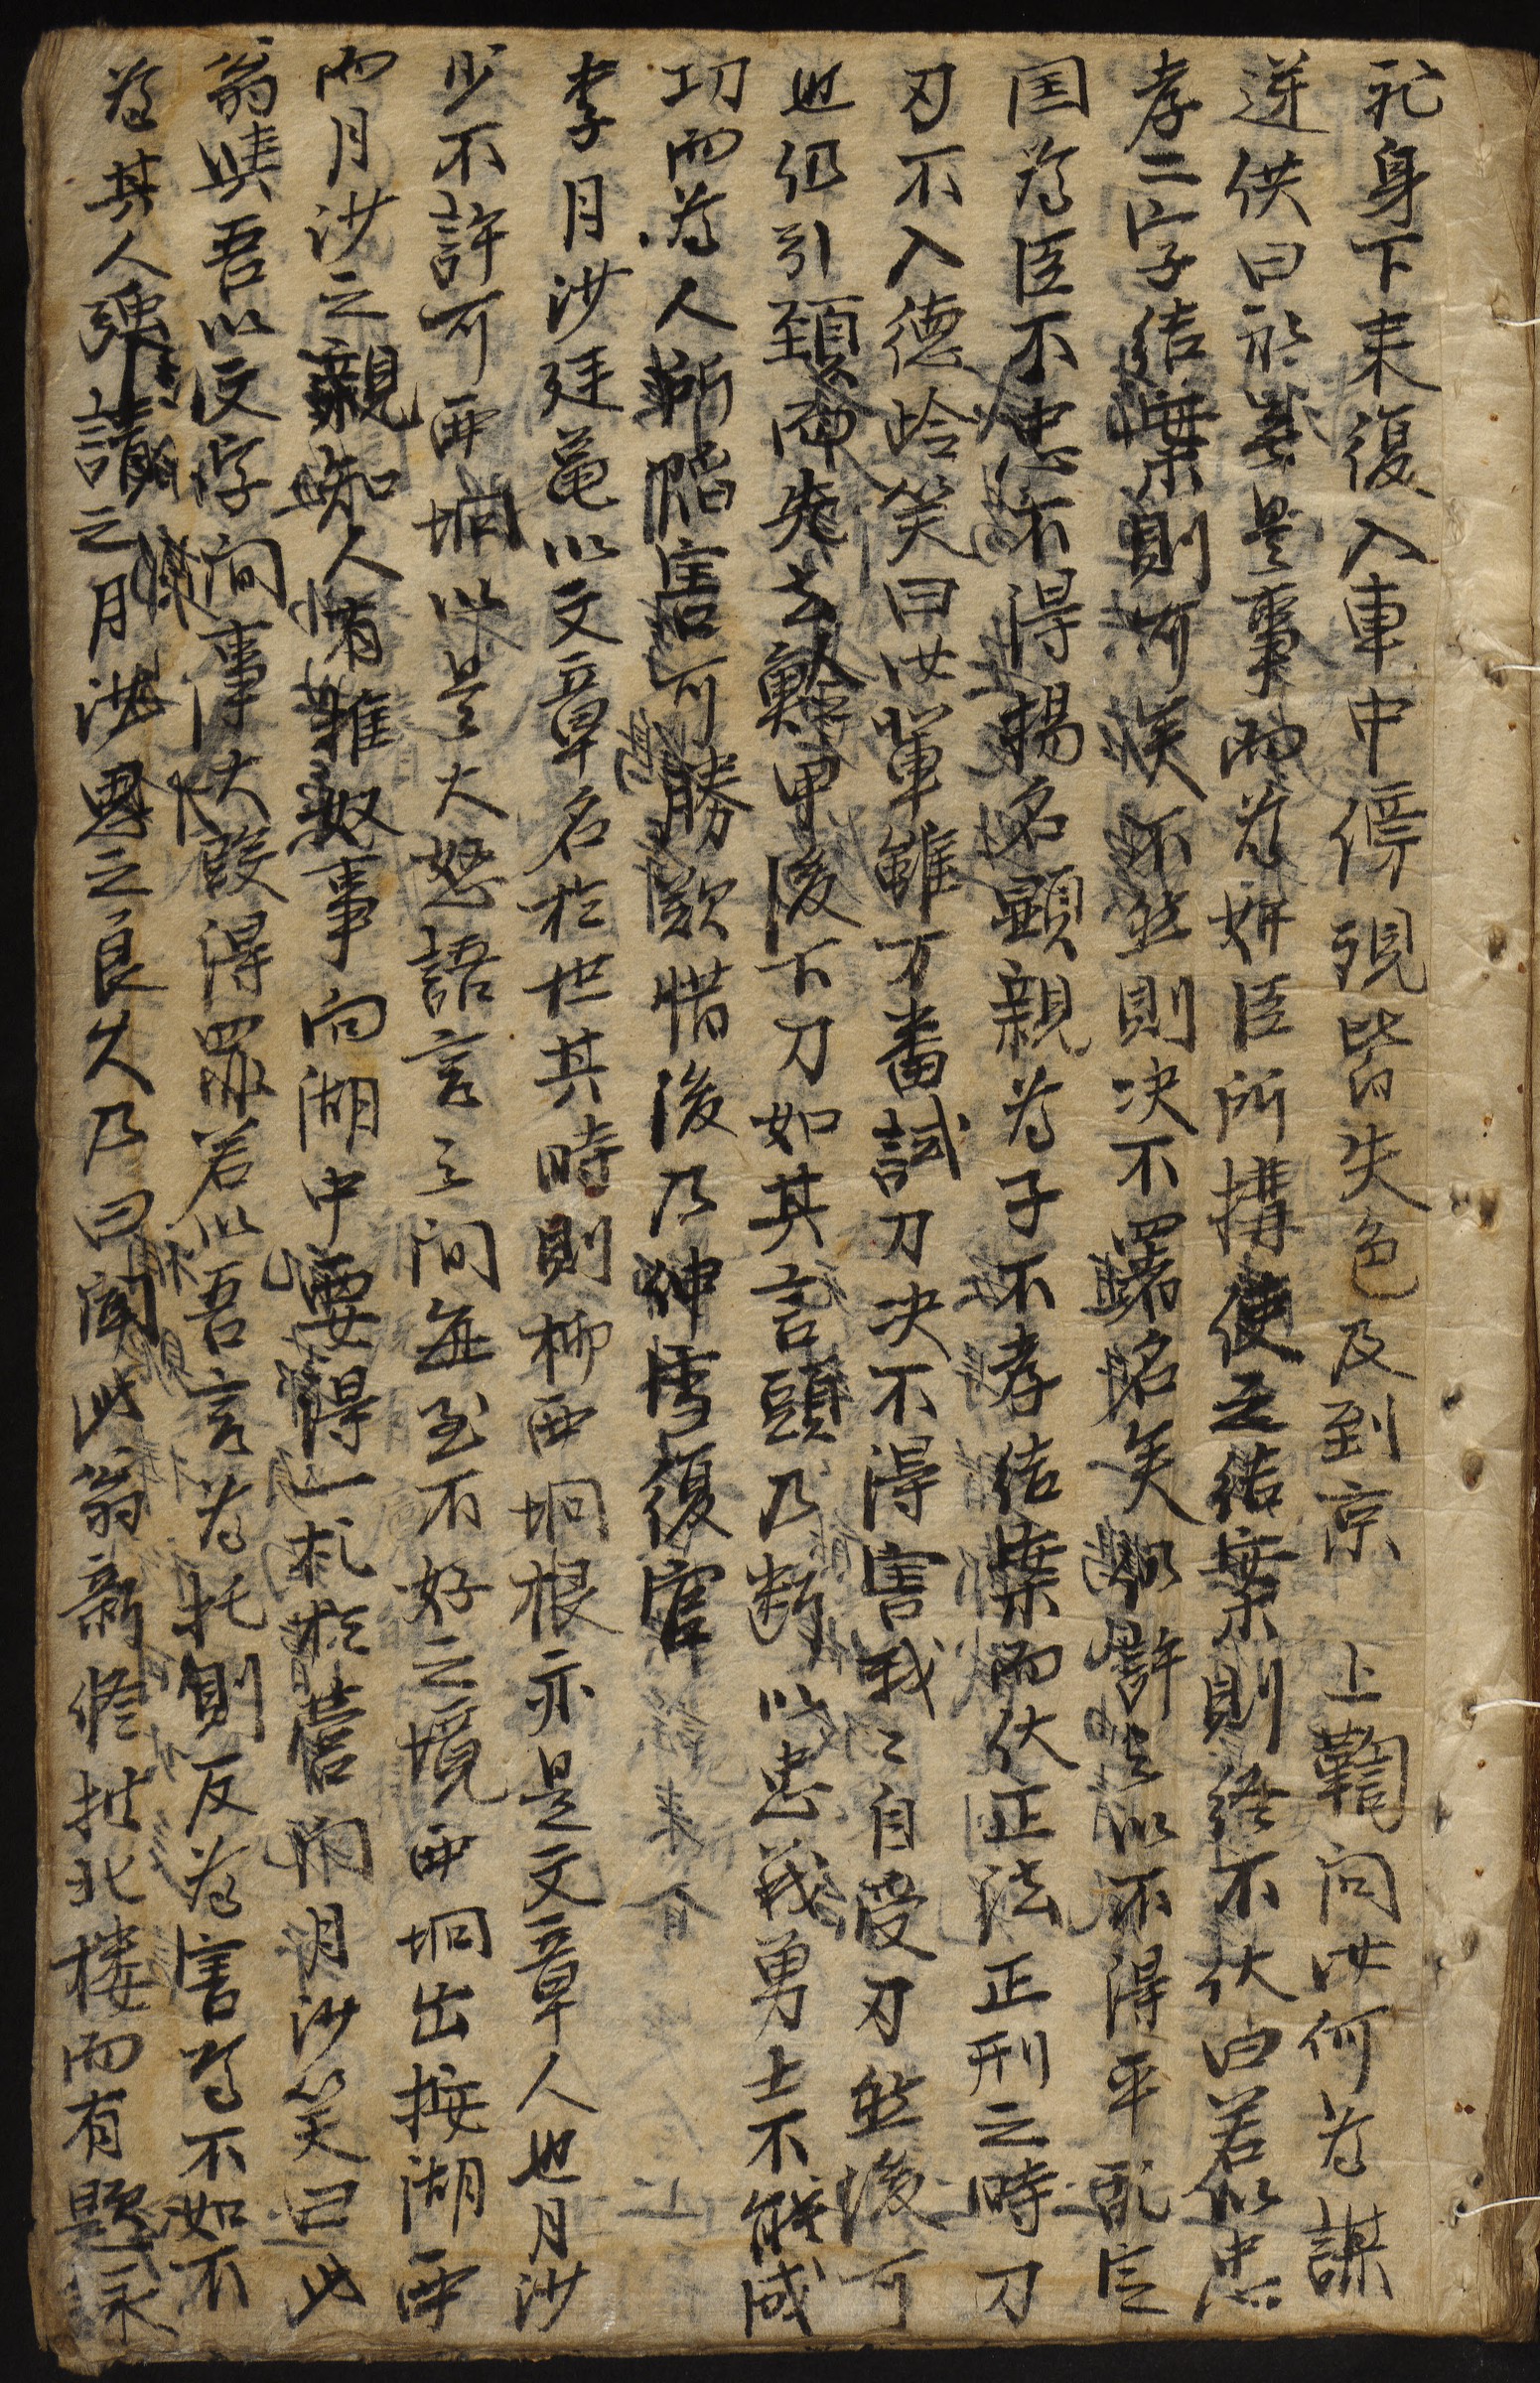 札身下来復入車中傍現皆失色及到京 上鞫问汝何為謀
逆供曰於曷是事而為奸臣所搆使之結案則終不伏白若以忠
孝二字结案則可矣不然則决不署名矣 許之以不得平配定
国為臣不忠不得揚名顕親為子不孝结案而伏正法正刑之時刀
刃不入德岭笑曰汝輩雖万番試刀决不得害我〻自受刃然後可
也仍引頚而先去鱗甲後下刀如其言頭乃断 以忠義勇士不能成
功而為人所陷害可勝歎惜後乃伸雪復官
李月沙廷龜以文章名於世其時則柳西坰根亦是文章人也月沙
少不許可西坰以是大怒語言之间每至不好之境西坰出按湖西
而月沙之親知人有推奴事向湖中要得一札於营门月沙笑曰此
翁與吾以文字间事大段得罪若以吾言為托則反為害焉不如不
為其人强請之月沙思之良久乃曰闻此翁新修拱北楼而有題永